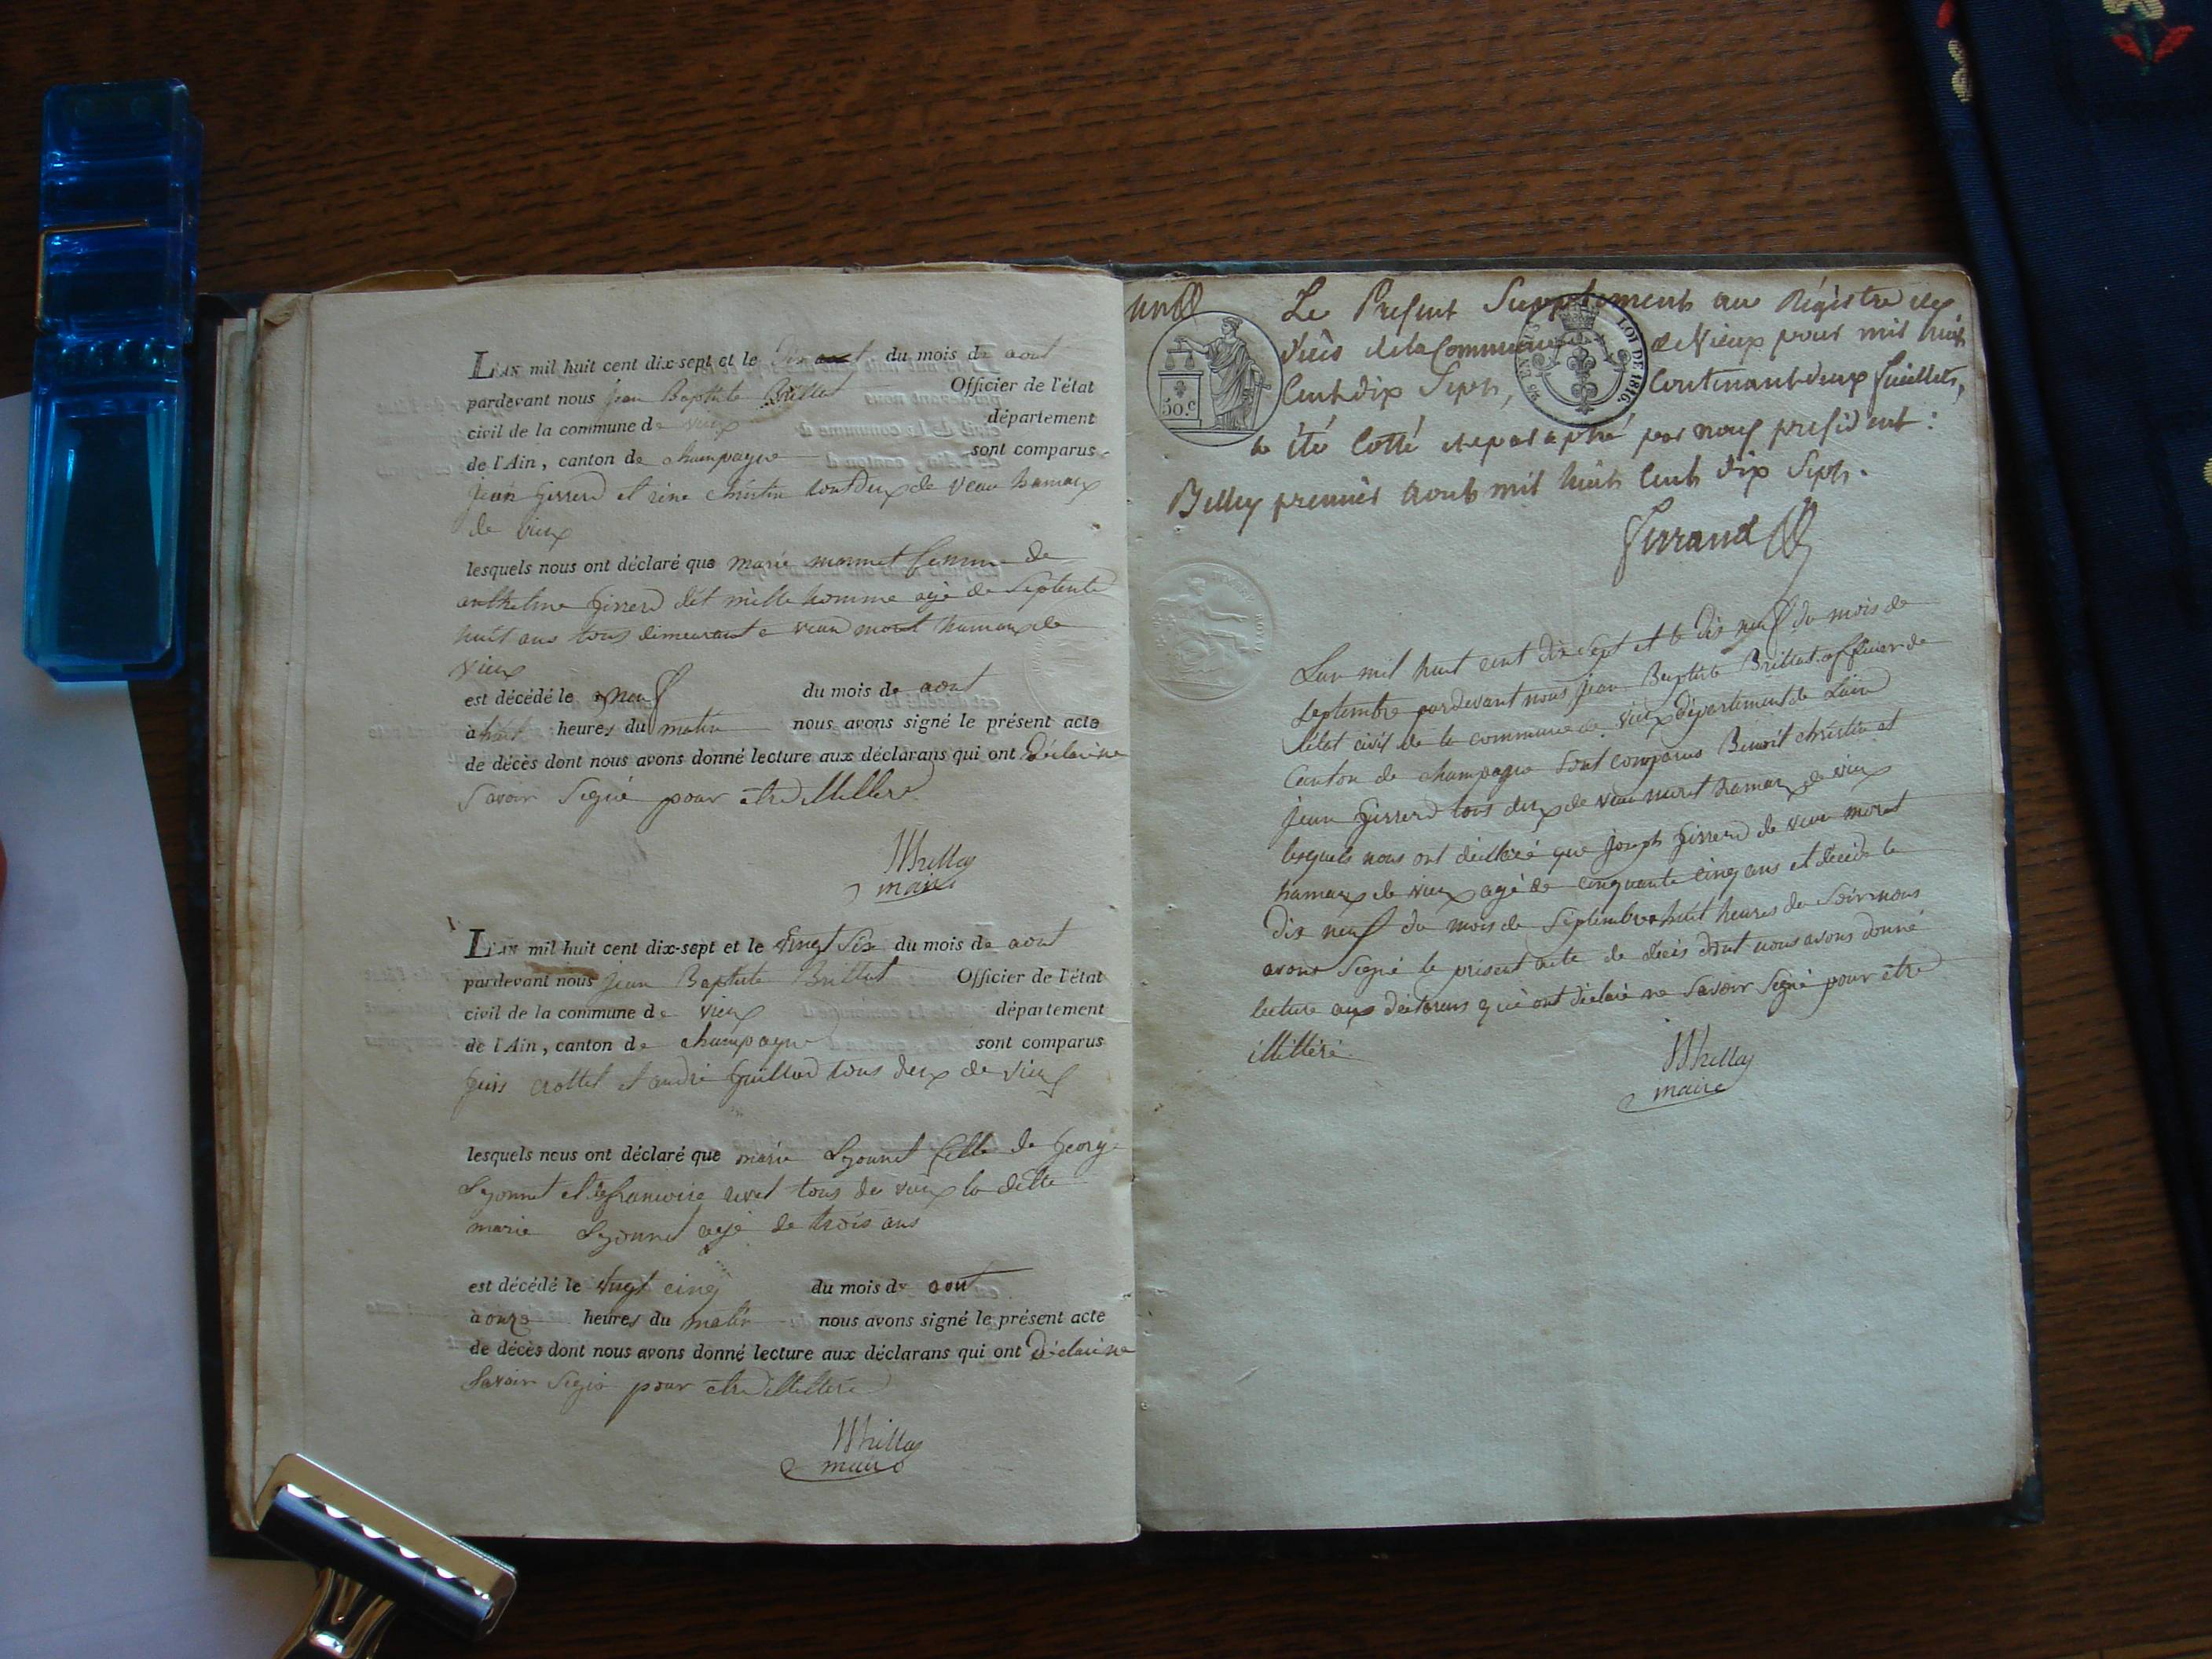 L'an mil huit cent dix-sept et le dix aout du mois de aout
pardevant nous jean Baptiste Brillat Officier de l'état
civil de la commune de vieux département
de l'Ain, canton de champagne sont comparus
jean girrerd et rine christin tout deux de veau hamaux
de vieux
lesquels nous ont déclaré que marie monnet femme de
anthelme girrerd dit mille homme agé de septente
huit ans tous dimeurant a veau moret hamaux de
vieux
est décédé le neuf du mois de aout
à huit heures du matin nous avons signé le présent acte
de décès dont nous avons donné lecture aux déclarans qui ont déclaré ne
savoir signé pour etre illitteré
JBrillat
maire
L'an mil huit cent dix-sept et le vingt six du mois de aout
pardevant nous jean Baptiste Brillat Officier de l'état
civil de la commune de vieux département
de l'Ain, canton de champagne sont comparus
crottet et andré guillod tous deux de vieux
lesquels nous ont déclaré que marie Lyonnet fille de george
Lyonnet et francoise revel tous de vieux la ditte
marie Lyonnet agé de trois ans
est décédé le vingt cinq du mois de aout
à onze heures du matin nous avons signé le présent acte
de décès dont nous avons donné lecture aux déclarans qui ont déclaré ne
savoir signé pour etre illitteré
JBrillat
maire
Le Present Supplement au Régistre des
Décès de la Commune de Vieux pour mil huit
Cent dix Sept, Contenant deux feuillets,
a été Cotté et paraphé par nous president:
Belley premier Aout mil huit Cent dix Sept.
50.c
LOI DE 1816.
Ferrand
L'an mil huit cent dix sept et le dix neuf du mois de
septembre pardevant nous jean Baptiste Brillat officier de
l'état civil de la commune de vieux département de Lain
canton de champagne sont comparus Benoit christin et
jean girrerd tous deux de veau moret hamaux de vieux
lesquels nous ont déclaré que joseph girrerd de veau moret
hamaux de vieux agé de cinquante cinq ans et décédé le
dix neuf du mois de septembre a huit heures du soir nous
avons signé le présent acte de décès dont nous avons donné
lecture aux déclarans qui ont déclaré ne savoir signé pour etre
illitteré.
JBrillat
maire